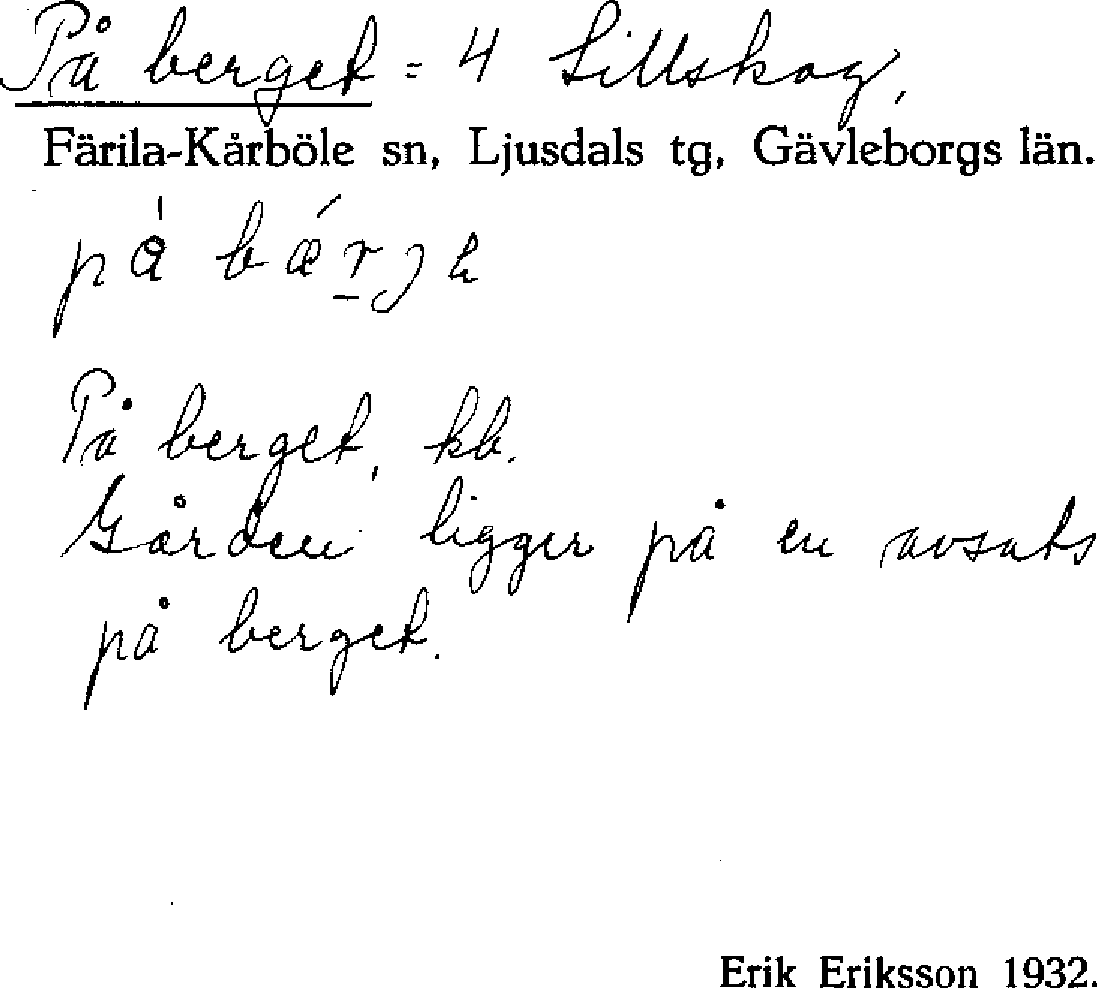 På berget = 4 Lillskog,
Färila-Kårböle sn, Ljusdals tg, Gävleborgs län.
på bǽr̲je
På berget, kb.
Gården ligger på en avsats
på berget.
Erik Eriksson 1932.